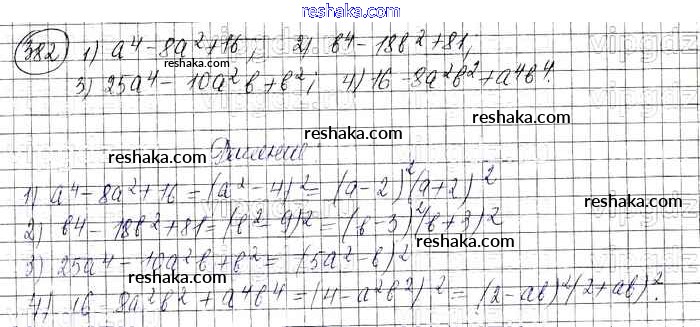 reshaka.com
382) 1) a⁴ - 8a² + 16; 2) b⁴ - 18b² + 81;
3) 25a⁴ - 10a²b + b²; 4) 16 - 8a²b² + a⁴b⁴.
reshaka.com
reshaka.com
reshaka.com
reshaka.com
1) a⁴ - 8a² + 16 = (a² - 4)² = (a - 2)²(a + 2)²
2) b⁴ - 18b² + 81 = (b² - 9)² = (b - 3)²(b + 3)²
3) 25a⁴ - 10a²b + b² = (5a² - b)²
reshaka.com
reshaka.com
4) 16 - 8a²b² + a⁴b⁴ = (4 - a²b²)² = (2 - ab)²(2 + ab)².
reshaka.com